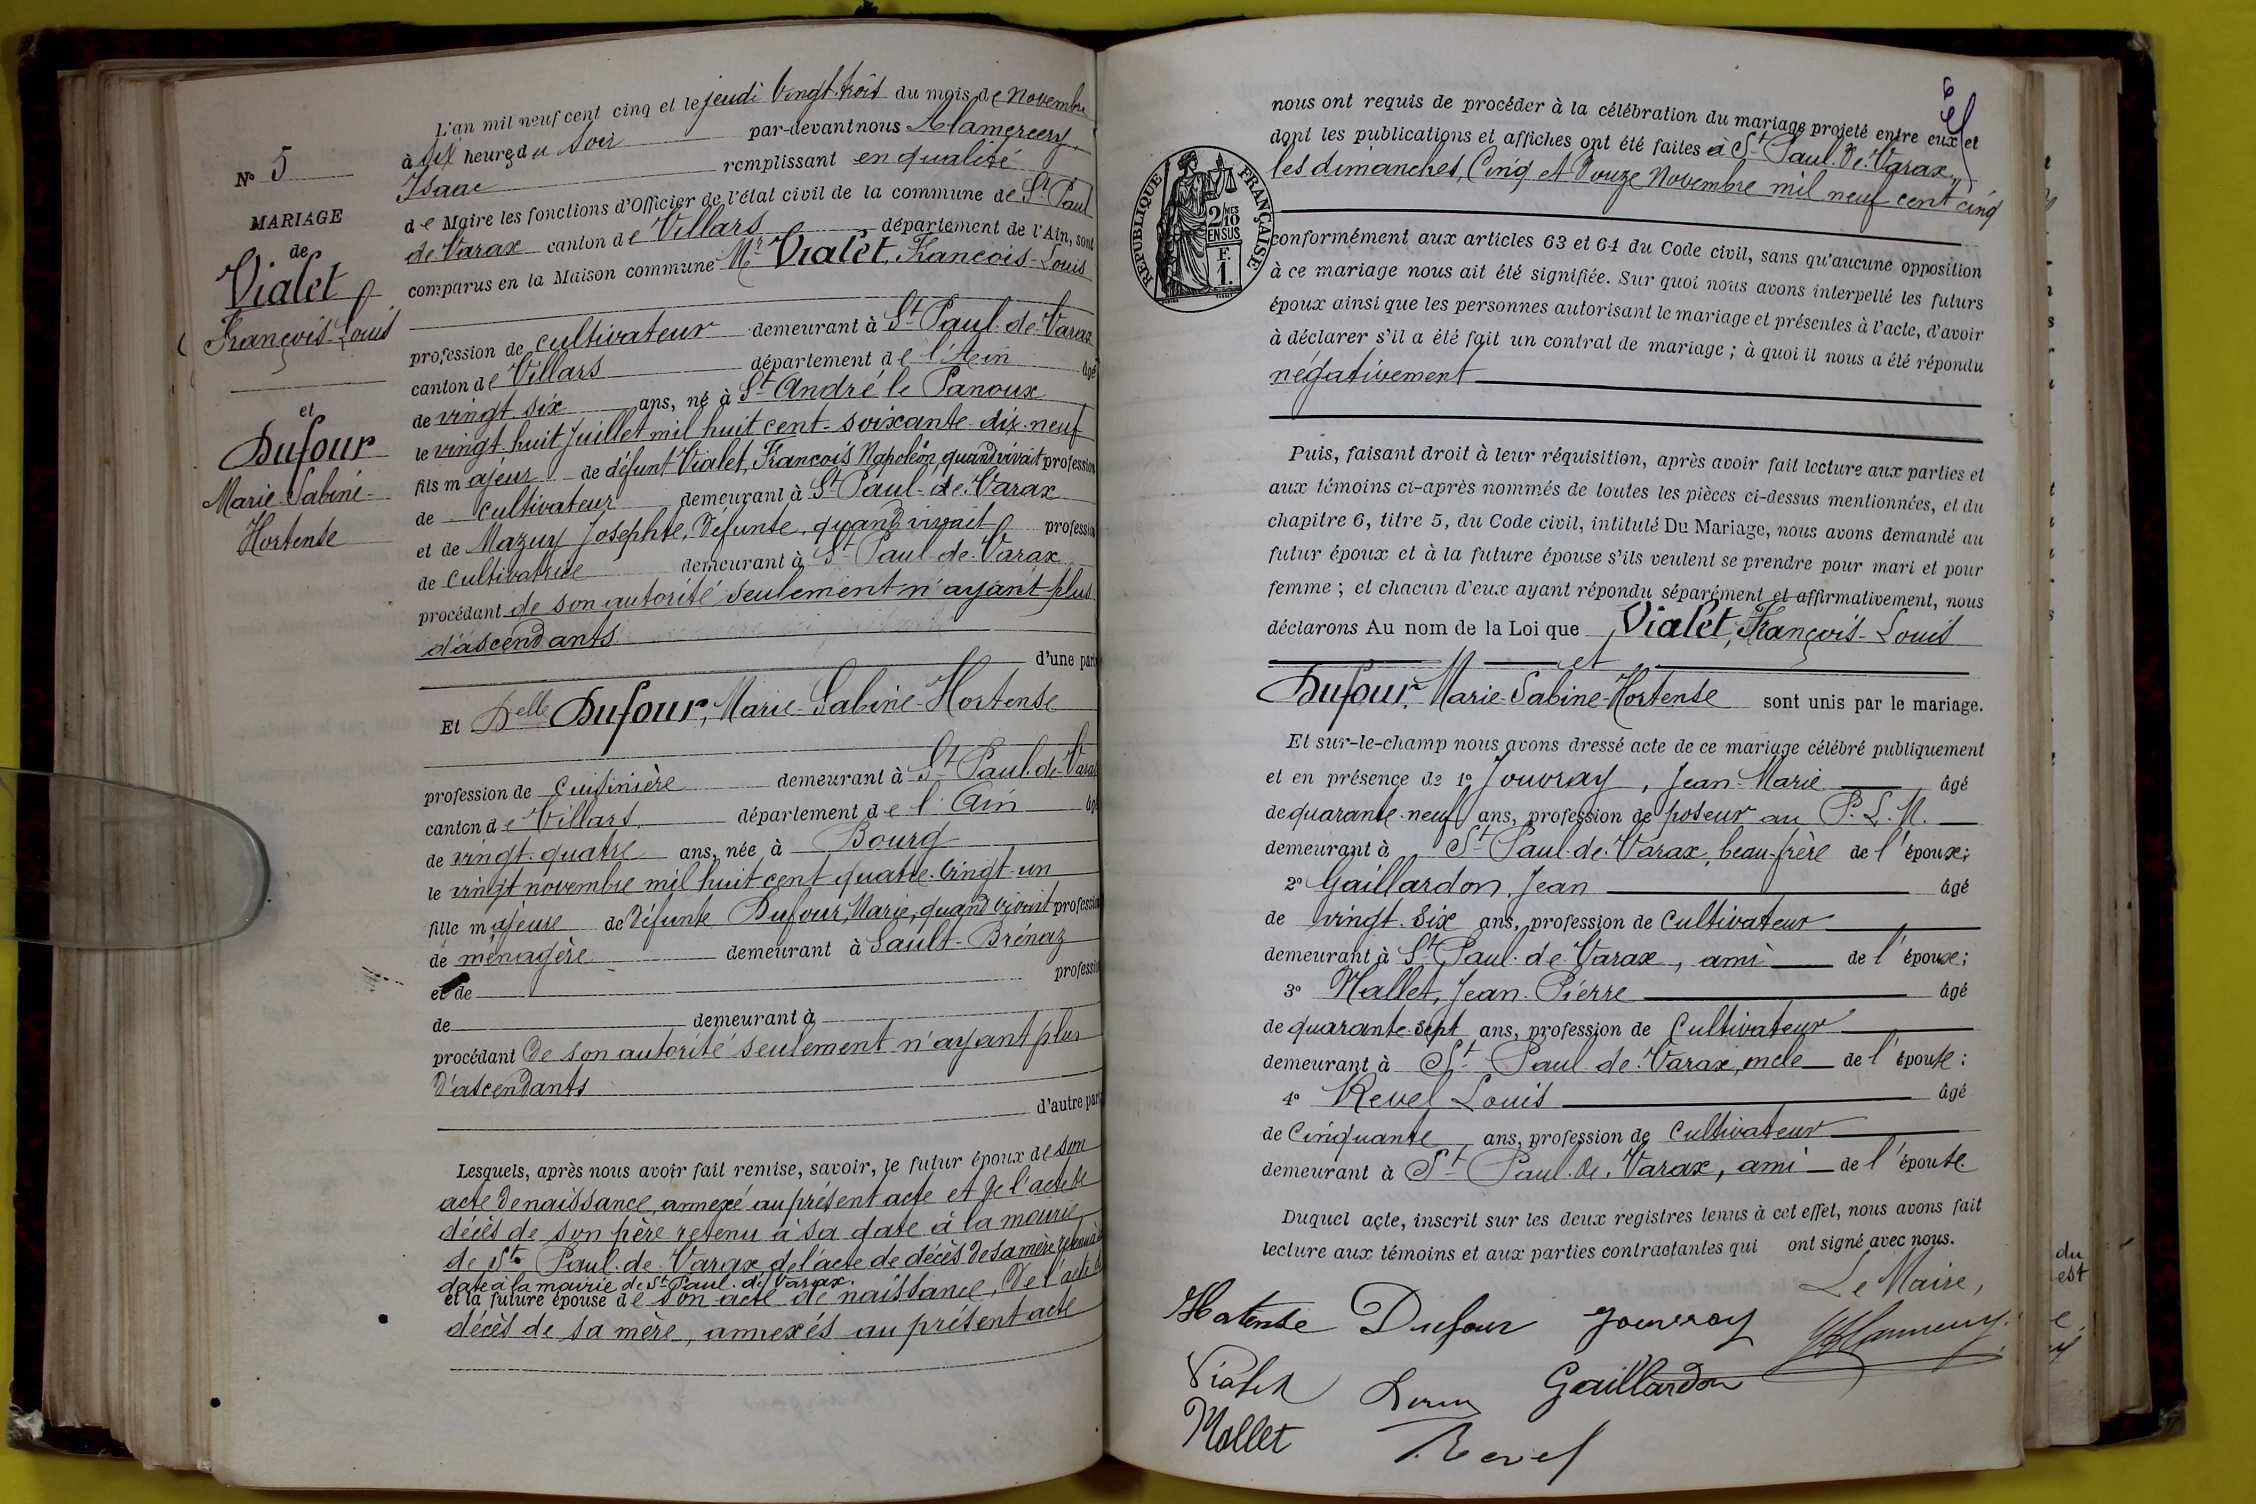 N° 5
MARIAGE
de
Vialet
François-Louis
et
Dufour
Marie-Sabine-
Hortense
L'an mil neuf cent cinq et le jeudi vingt-trois du mois de Novembre
à six heures du soir par-devant nous Alamercery
Isaac remplissant en qualité
de Maire les fonctions d'Officier de l'état civil de la commune de St Paul
de Varax canton de Villars département de l'Ain, sont
comparus en la Maison commune Mr Vialet, François-Louis
profession de cultivateur demeurant à St Paul-de-Varax
canton de Villars département de l'Ain âgé
de vingt six ans, né à St André le Panoux
le vingt huit Juillet mil huit cent-soixante-dix-neuf
fils majeur de défunt Vialet, François Napoléon, quand vivait profession
de cultivateur demeurant à St Paul-de-Varax
et de Mazuy Josephte, défunte, quand vivait profession
de cultivatrice demeurant à St Paul-de-Varax
procédant de son autorité seulement n'ayant plus
d'ascendants
d'une part
Et Delle Dufour, Marie-Sabine-Hortense
profession de cuisinière demeurant à St Paul-de-Varax
canton de Villars département de l'Ain âgée
de vingt-quatre ans, née à Bourg
le vingt novembre mil huit cent quatre-vingt-un
fille majeure de défunte Dufour, Marie, quand vivait profession
de ménagère demeurant à Sault-Brénaz
et de profession
de demeurant à
procédant de son autorité seulement n'ayant plus
d'ascendants
d'autre part
Lesquels, après nous avoir fait remise, savoir, le futur époux de son
acte de naissance, annexé au présent acte et de l'acte de
décès de son père retenu à sa date à la mairie
de St Paul-de-Varax de l'acte de décès de sa mère retenu à sa
date à la mairie de St Paul-de-Varax.
et la future épouse de son acte de naissance, de l'acte de
décès de sa mère, annexés au présent acte
nous ont requis de procéder à la célébration du mariage projeté entre eux et
dont les publications et affiches ont été faites à St Paul-de-Varax
les dimanches, Cinq et Douze Novembre mil neuf cent cinq
RÉPUBLIQUE FRANÇAISE
2/10MES
EN SUS
F.
1.
conformément aux articles 63 et 64 du Code civil, sans qu'aucune opposition
à ce mariage nous ait été signifiée. Sur quoi nous avons interpellé les futurs
époux ainsi que les personnes autorisant le mariage et présentes à l'acte, d'avoir
à déclarer s'il a été fait un contrat de mariage ; à quoi il nous a été répondu
négativement
Puis, faisant droit à leur réquisition, après avoir fait lecture aux parties et
aux témoins ci-après nommés de toutes les pièces ci-dessus mentionnées, et du
chapitre 6, titre 5, du Code civil, intitulé Du Mariage, nous avons demandé au
futur époux et à la future épouse s'ils veulent se prendre pour mari et pour
femme ; et chacun d'eux ayant répondu séparément et affirmativement, nous
déclarons Au nom de la Loi que Vialet, François-Louis
et
Dufour, Marie-Sabine-Hortense sont unis par le mariage.
Et sur-le-champ nous avons dressé acte de ce mariage célébré publiquement
et en présence de 1° Jouvray, Jean-Marie âgé
de quarante-neuf ans, profession de poseur au P. L. M.
demeurant à St Paul-de-Varax, beau-frère de l'époux ;
2° Gaillardon, Jean âgé
de vingt-six ans, profession de cultivateur
demeurant à St Paul-de-Varax, ami de l'épouse ;
3° Mallet, Jean-Pierre âgé
de quarante-sept ans, profession de cultivateur
demeurant à St Paul-de-Varax, oncle de l'épouse :
4° Revel Louis âgé
de Cinquante ans, profession de cultivateur
demeurant à St Paul-de-Varax, ami de l'épouse.
Duquel acte, inscrit sur les deux registres tenus à cet effet, nous avons fait
lecture aux témoins et aux parties contractantes qui ont signé avec nous.
Le Maire,
Hortense Dufour Jouvray
Vialet Louis Gaillardon
Mallet Revel
du
est